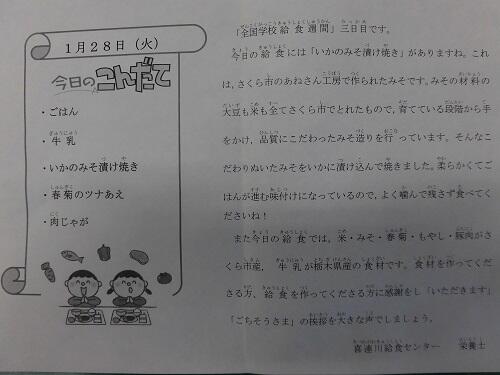 1月28日（火）
今日のこんだて
・ごはん
・牛乳
・いかのみそ漬け焼き
・春菊のツナあえ
・肉じゃが
「全国学校給食週間」三日目です。
今日の給食には「いかのみそ漬け焼き」がありますね。これ
は、さくら市のあねさん工房で作られたみそです。みその材料の
大豆も米も全てさくら市でとれたもので、育てている段階から手
をかけ、品質にこだわったみそ造りを行っています。そんなこ
だわりぬいたみそをいかに漬け込んで焼きました。柔らかくてご
はんが進む味付けになっているので、よく噛んで残さず食べてく
ださいね！
また今日の給食では、米・みそ・春菊・もやし・豚肉がさ
くら市産、牛乳が栃木県産の食材です。食材を作ってくだ
さる方、給食を作ってくださる方に感謝をし「いただきます」
「ごちそうさま」の挨拶を大きな声でしましょう。
喜連川給食センター　栄養士